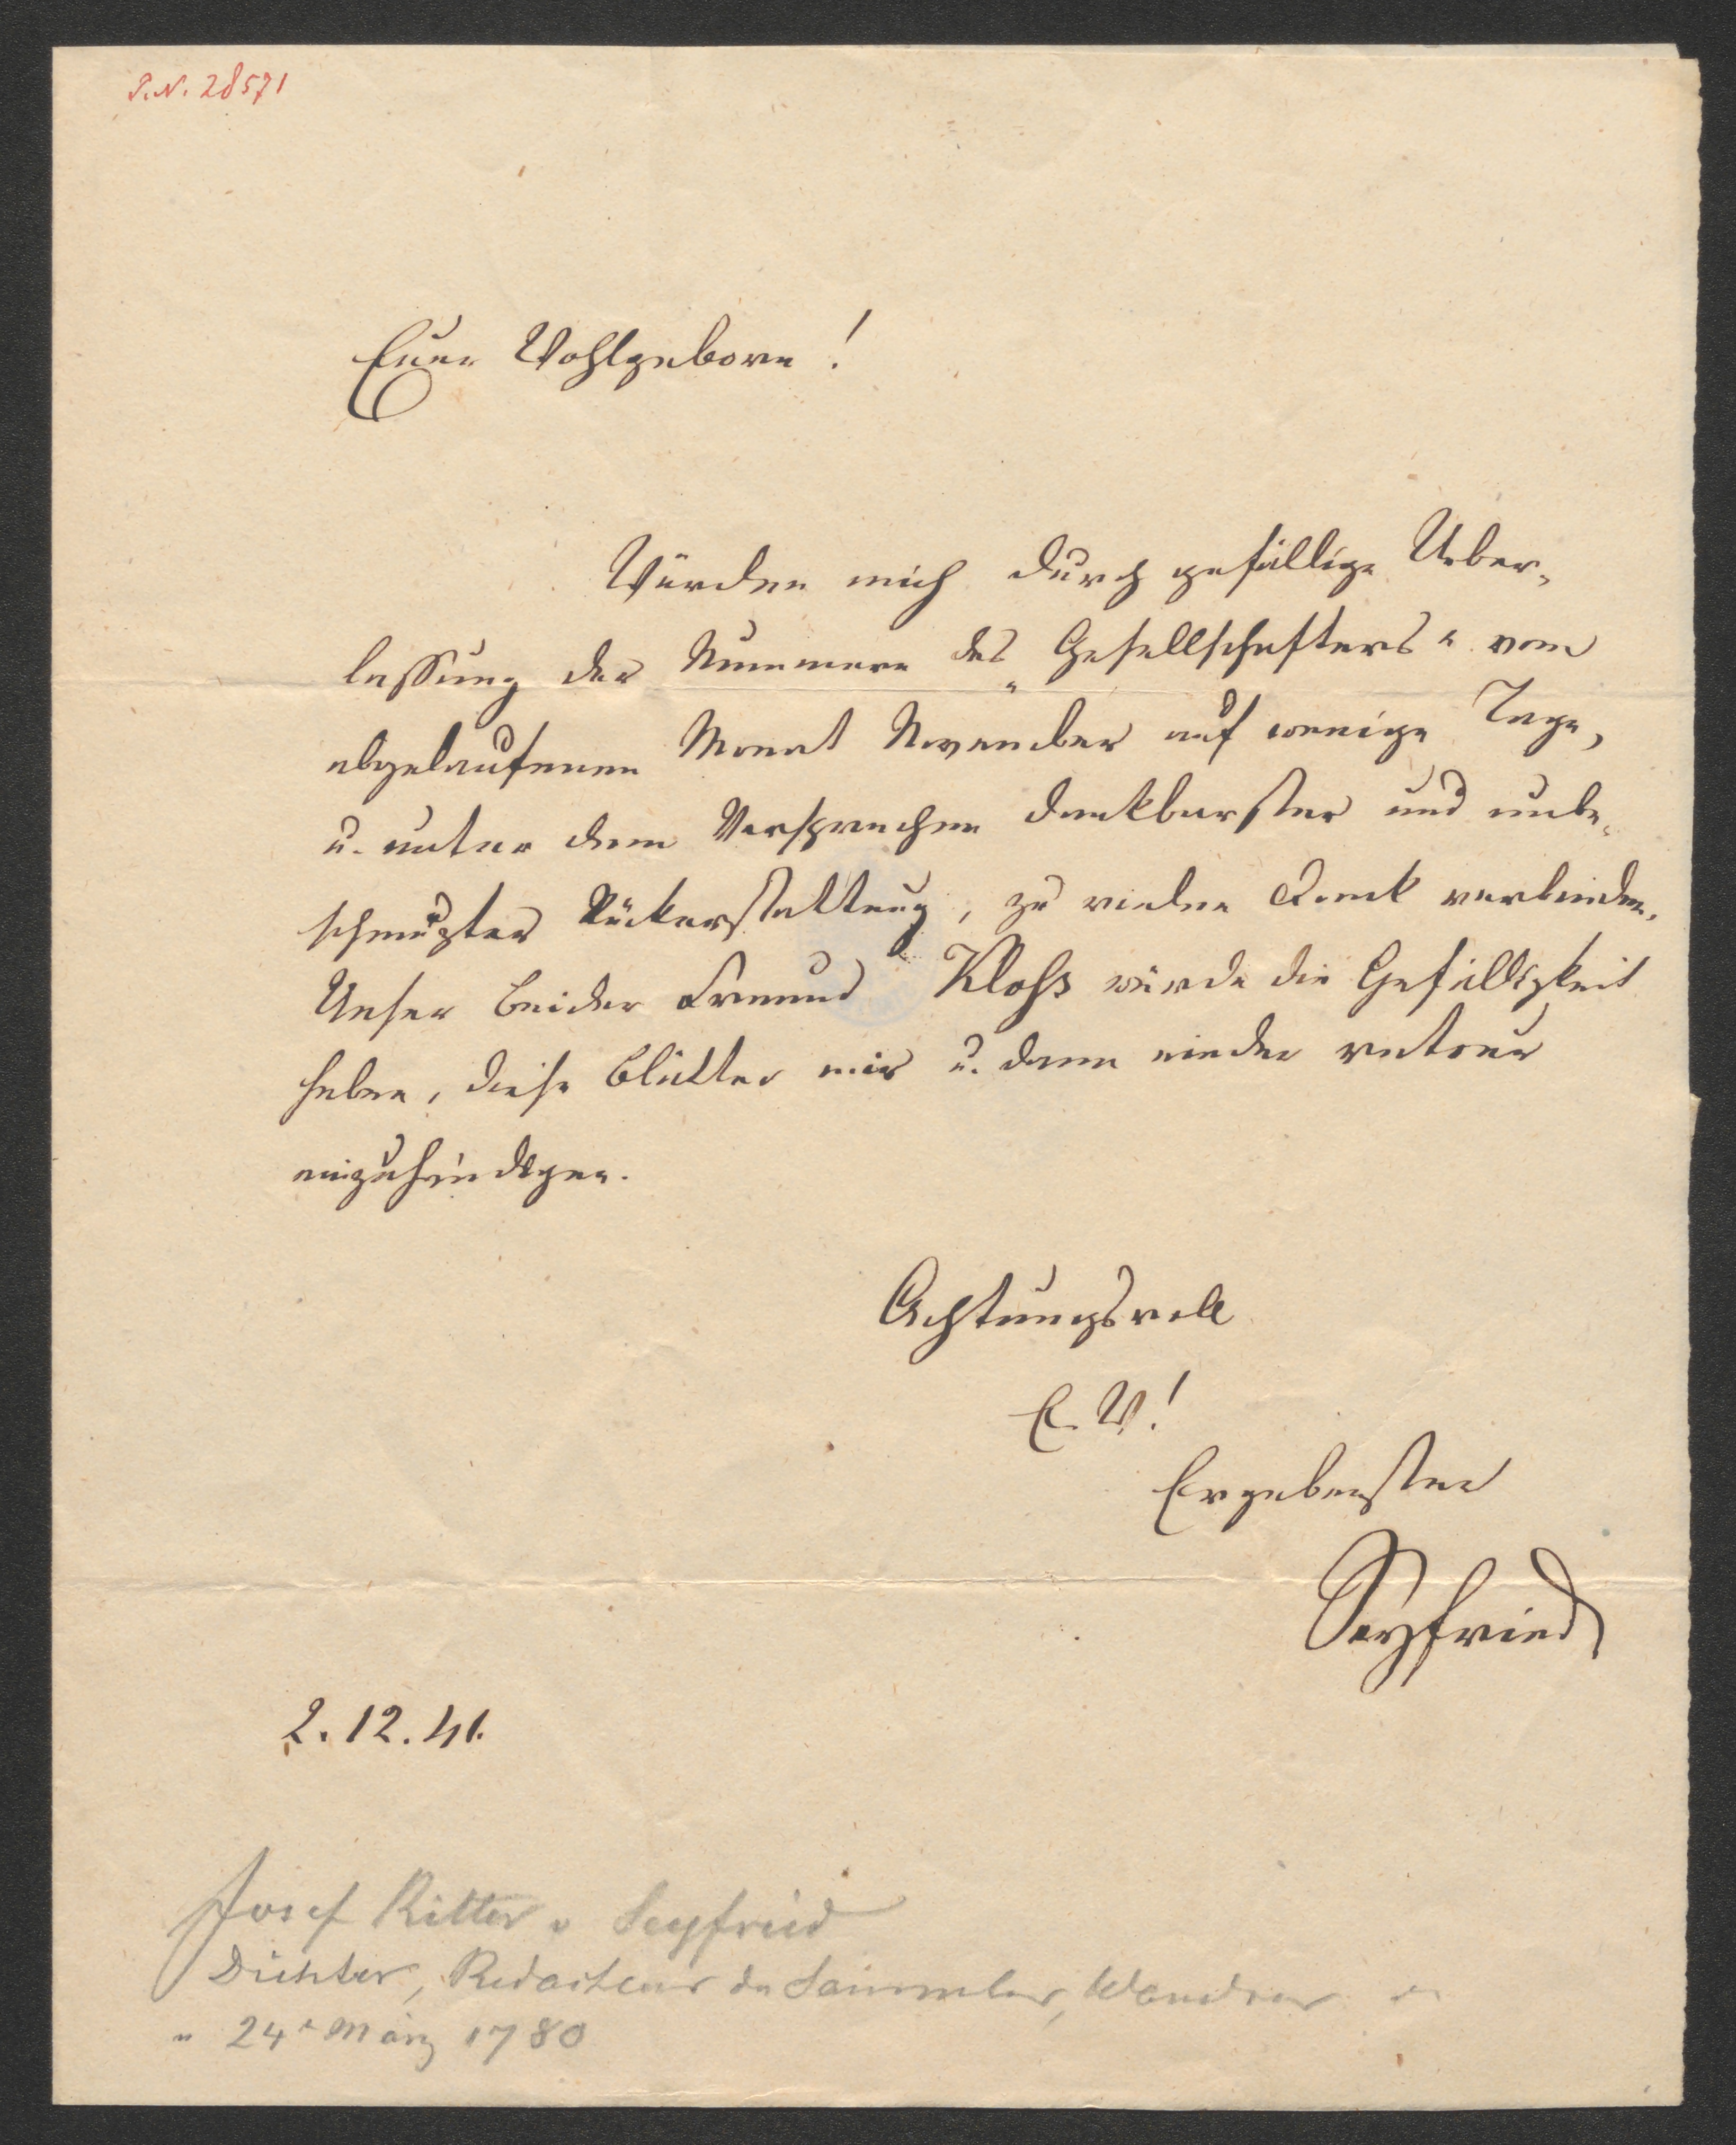 I.N. 28571
Euer Wohlgeborn!
Würden mich durch gefällige Ueber-
lassung der Nummern des „Gesellschafters“ vom
abgelaufenen Monat November auf wenige Tage,
u. unter dem Versprechen dankbarster und unbe-
schmuzter Rückerstattung, zu vielem Dank verbinden.
Unser beider Freund Kloss würde die Gefälligkeit
haben, diese Blätter mir u. dann wieder retour
einzuhändigen.
Achtungsvoll
E. W!
Ergebenster
Seyfried
2.12.41.
Josef Ritter v Seyfried
Dichter, Redacteur de Sammler, Wandrer
24t März 1780